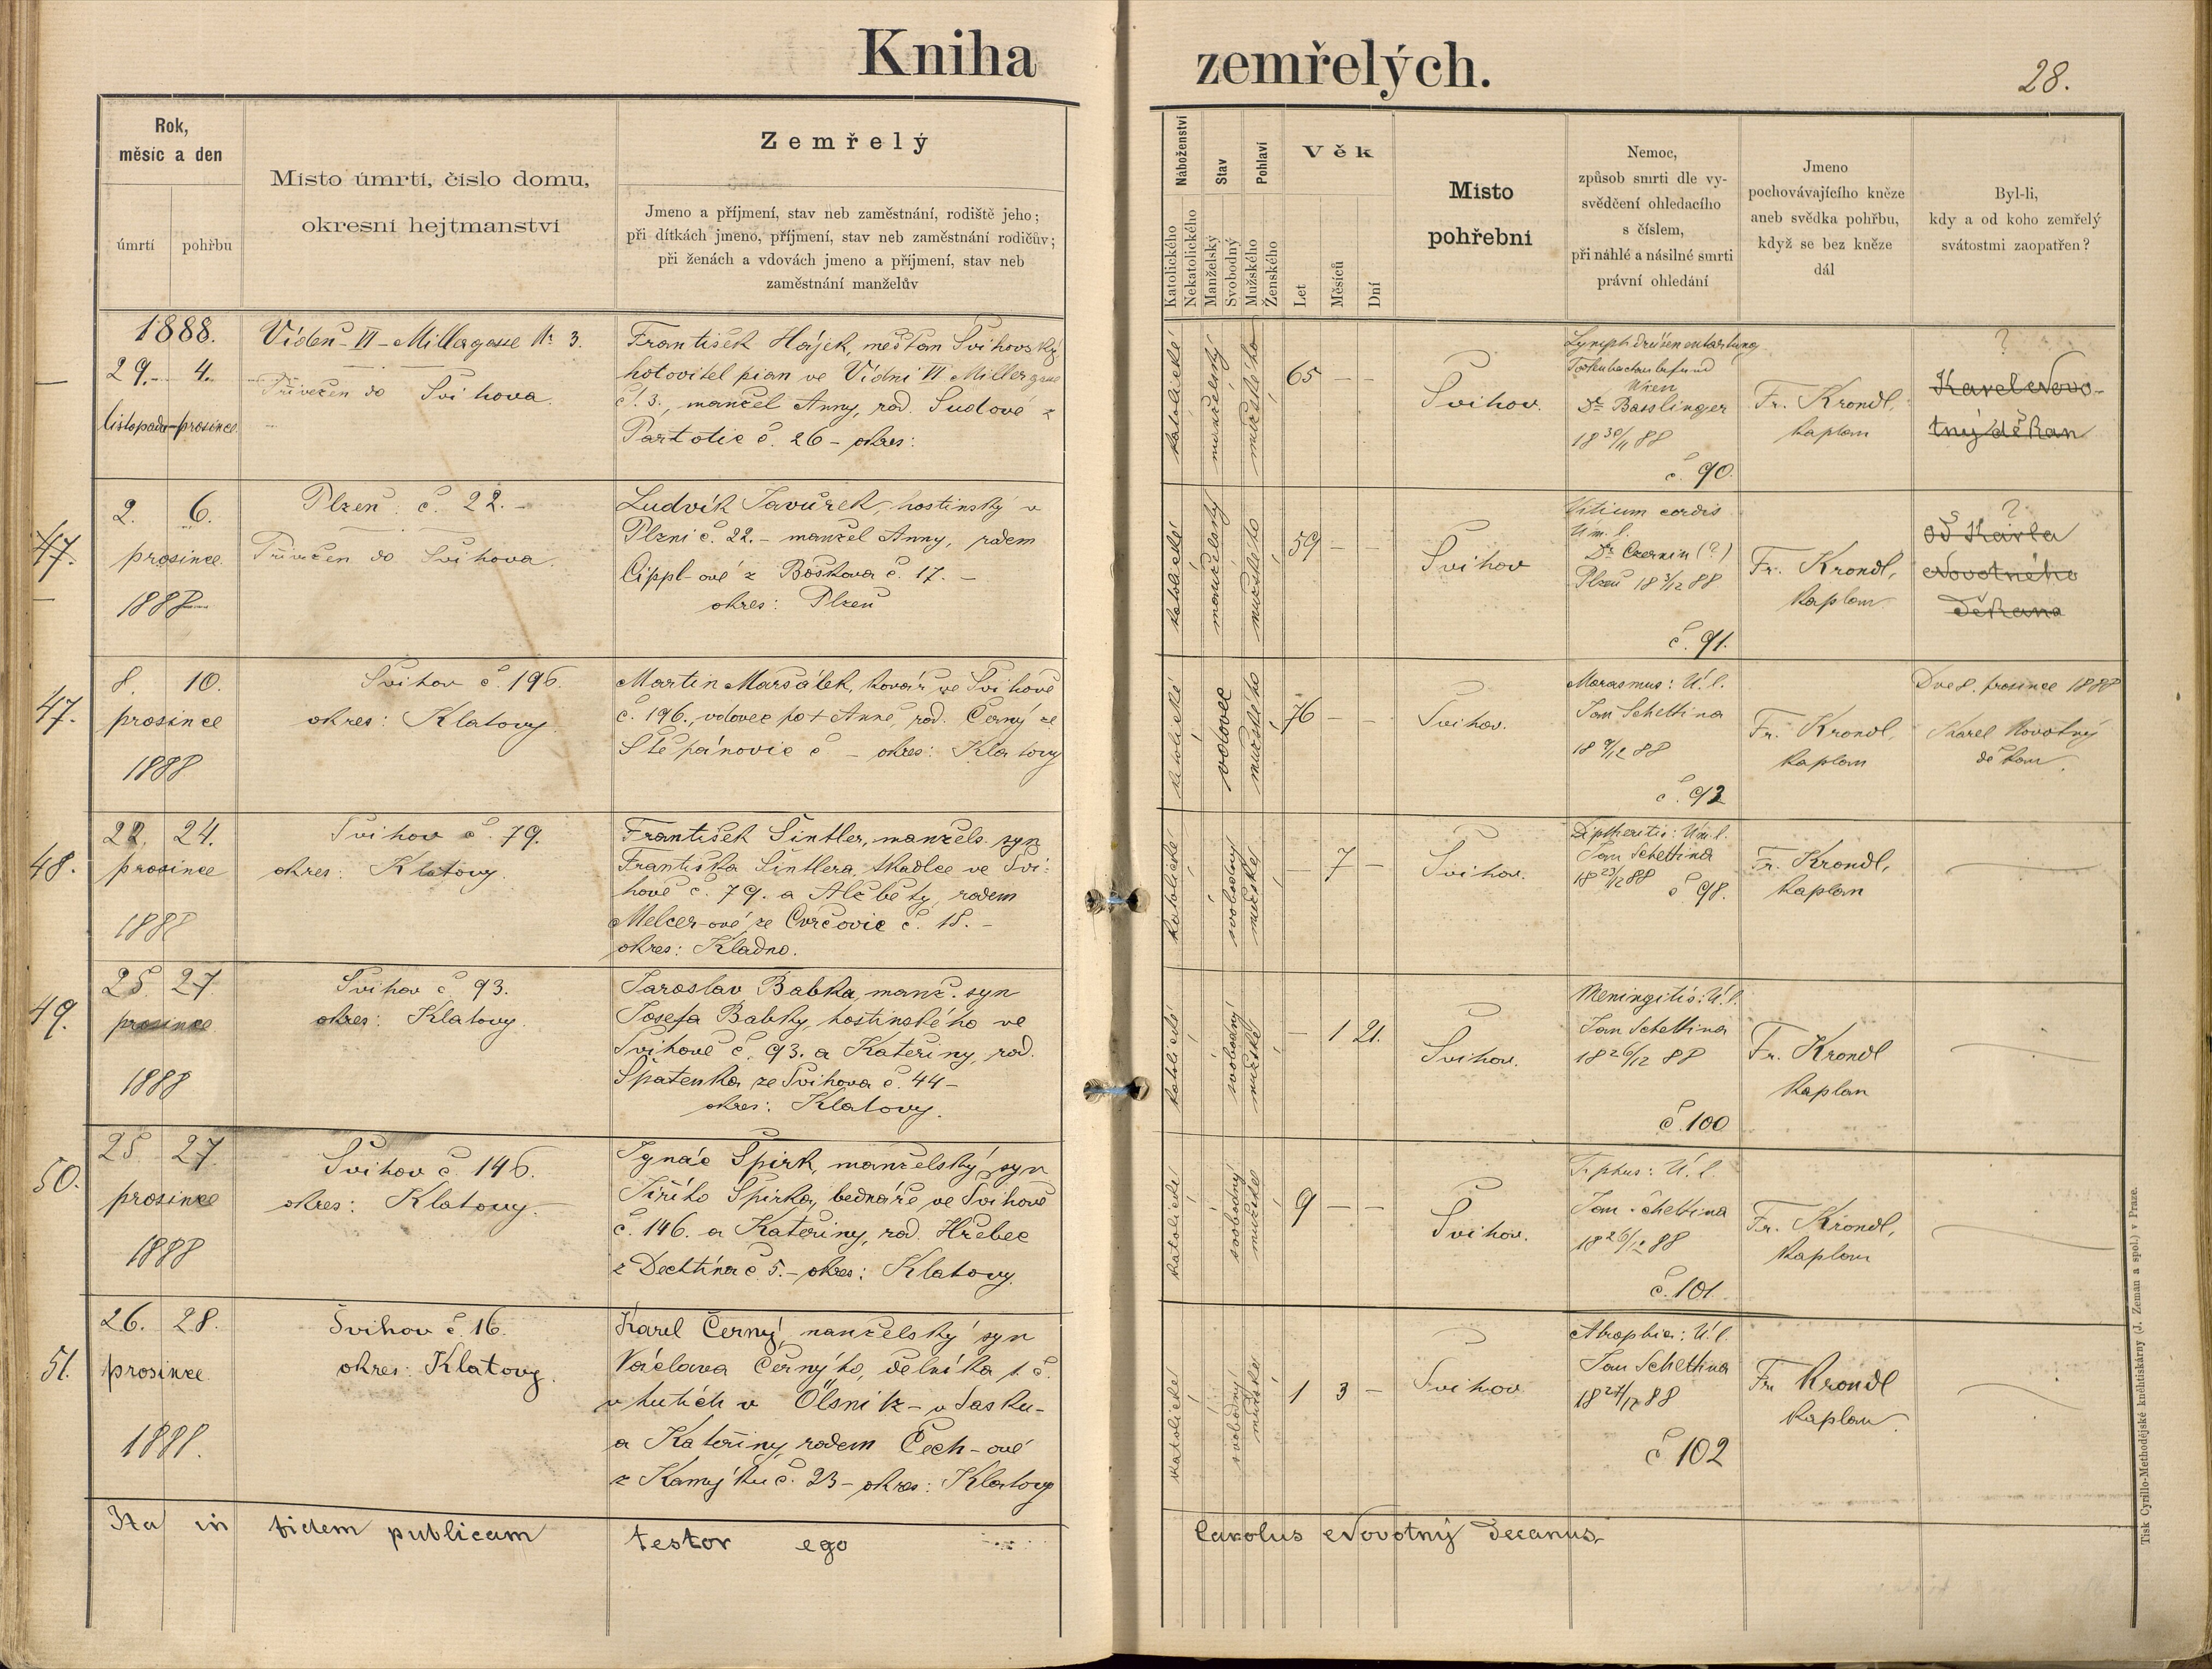 Kniha zemřelých.
28.
Rok,
měsíc a den
úmrtí pohřbu
Misto úmrtí, čislo domu,
okresní hejtmanství
Zemřelý
Jmeno a příjmení, stav neb zaměstnání, rodiště jeho;
při dítkách jmeno, příjmení, stav neb zaměstnání rodičův;
při ženách a vdovách jmeno a příjmení, stav neb
zaměstnání manželův
Náboženství
Katolického
Nekatolického
Stav
Manželský
Svobodný
Pohlaví
Mužského
Ženského
Věk
Let
Měsíců
Dní
Misto
pohřebni
Nemoc,
způsob smrti dle vy-
svědčení ohledacího
s číslem,
při náhlé a násilné smrti
právní ohledání
Jmeno
pochovávajícího kněze
aneb svědka pohřbu,
když se bez kněze
dál
Byl-li,
kdy a od koho zemřelý
svátostmi zaopatřen?
1888.
29. 4.
listopadu prosince
Vídeň - VI - Millergasse Nr. 3.
Přivezen do Švihova
František Hájek, měšťan Švihovský
hotovitel pian ve Vídni VI Millergasse
č. 3., manžel Anny, rod. Sudové z
Partotic č. 26 - okres:
katolické
manželský
mužského
65 - -
Švihov.
Lymphdrüsenentartung
Todtenbeschaubefund
Wien
Dr Basslinger
18 30/11 88
č. 90.
Fr. Krondl,
kaplan
?
Karel Novo-
tný děkan
47.
2. 6.
prosince
1888
Plzeň č. 22. -
Přivezen do Švihova.
Ludvík Javůrek, hostinský v
Plzni č. 22. - manžel Anny, rodem
Cippl-ové z Boškova č. 17. -
okres: Plzeň
katolické
manželský
mužského
59 - -
Švihov
Vitium cordis
Úm. l.
Dr. Czernin (?)
Plzeň 18 3/12 88
č. 91.
Fr. Krondl,
kaplan
?
od Karla
Novotného
děkana
47.
8. 10.
prosince
1888
Švihov č. 196.
okres: Klatovy
Martin Maršálek, kovář ve Švihově
č. 196., vdovec po † Anně, rod. Černý ze
Štěpánovic č - okres: Klatovy
katolické
vdovec
mužského
76 - -
Švihov.
Marasmus: Ú. l.
Jan Schettina
18 9/12 88
č. 93
Fr. Krondl,
kaplan
Dne 8. prosince 1888
Karel Novotný
děkan
48.
22. 24.
prosince
1888
Švihov č. 79.
okres: Klatovy
František Šintler, manžels. syn
Františka Šintlera, tkadlce ve Švi-
hově č. 79. a Alžběty, rodem
Melcer-ové ze Cvrčovic č. 15. -
okres: Kladno.
katolické
svobodný
mužské
- 7 -
Švihov.
Diptheritis: Úm. l.
Jan Schettina
18 23/12 88
č 98.
Fr. Krondl,
kaplan
49.
25. 27
prosince
1888
Švihov č. 93.
okres: Klatovy.
Jaroslav Babka, manž. syn
Josefa Babky, hostinského ve
Švihově č. 93. a Kateřiny, rod.
Špatenka ze Švihova č. 44 -
okres: Klatovy.
katolické
svobodný
mužské
- 1 21.
Švihov.
Meningitis: Ú. l.
Jan Schettina
18 26/12 88
č. 100
Fr. Krondl
kaplan
50.
25 27
prosince
1888
Švihov č. 146.
okres: Klatovy.
Ignác Špirk, manželský syn
Jiřího Špirka, bednáře ve Švihově
č. 146. a Kateřiny, rod. Hřebec
z Dechtína č 5. - okres: Klatovy.
katolické
svobodný
mužské
9 - -
Švihov.
Tiphus: Ú. l.
Jan Schettina
18 26/12 88
č. 101.
Fr. Krondl,
kaplan
51.
26. 28.
prosince
1888.
Švihov č. 16.
okres: Klatovy.
Karel Černý, manželský syn
Václava Černýho, dělníka t. č.
v hutích v Ölsnitz - v Sasku -
a Kateřiny, rodem Čech-ové
z Kamýku č. 23 - okres: Klatovy
katolické
svobodný
mužské
1 3 -
Švihov
Atrophia: Ú. l.
Jan Schettina
18 27/12 88
č 102
Fr. Krondl
kaplan
Ita in fidem publicam testor ego Carolus Novotný decanus.
Tisk Cyrillo-Methodějské knihtiskárny (J. Zeman a spol.) v Praze.